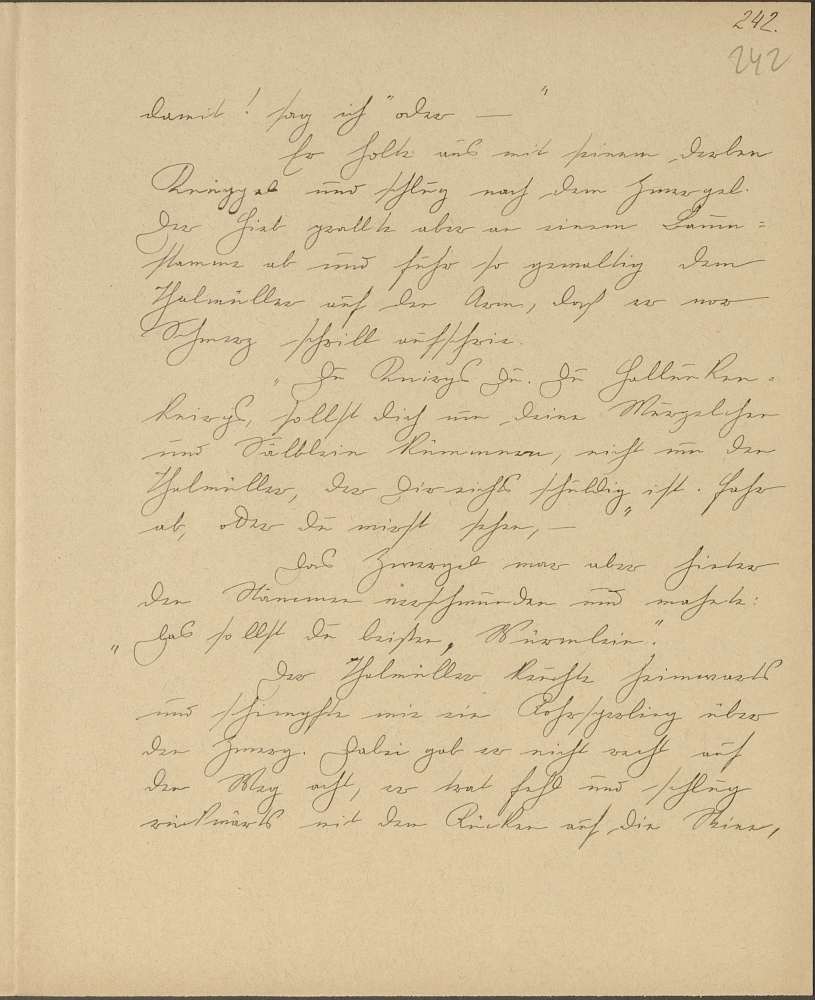 242.
242
damit! sag ich "oder — "
Er holte aus mit seinem derben
Knüppel und schlug nach dem Zwergel.
Der Hieb prallte aber an einem Baum=
stamme ab und fuhr so gewaltig dem
Thalmüller auf den Arm, daß er vor
Schmerz schrill aufschrie.
"Du Knirps Du. Du Hallunken=
knirps, sollst dich um deine Würzelchen
und Sälblein kümmern, nicht um den
Thalmüller, der Dir nichts schuldig ist. Fahr
ab, oder du wirst sehen, — "
Das Zwergel war aber hinter
den Stämmen verschwunden und mahnte:
"Das sollst du büßen, Würmlein".
Der Thalmüller keuchte heimwärts
und schimpfte wie ein Rohrsperling über
den Zwerg. Dabei gab er nicht recht auf
den Weg acht, er trat fehl und schlug
rückwärts mit dem Rücken auf die Steine,